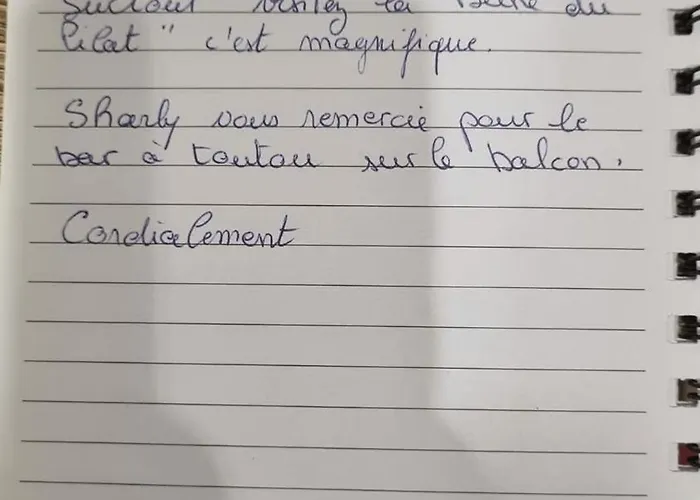 Surtout visitez la "Dune du
Pilat" c'est magnifique.
Sharly vous remercie pour le
bar à toutou sur le balcon.
Cordialement